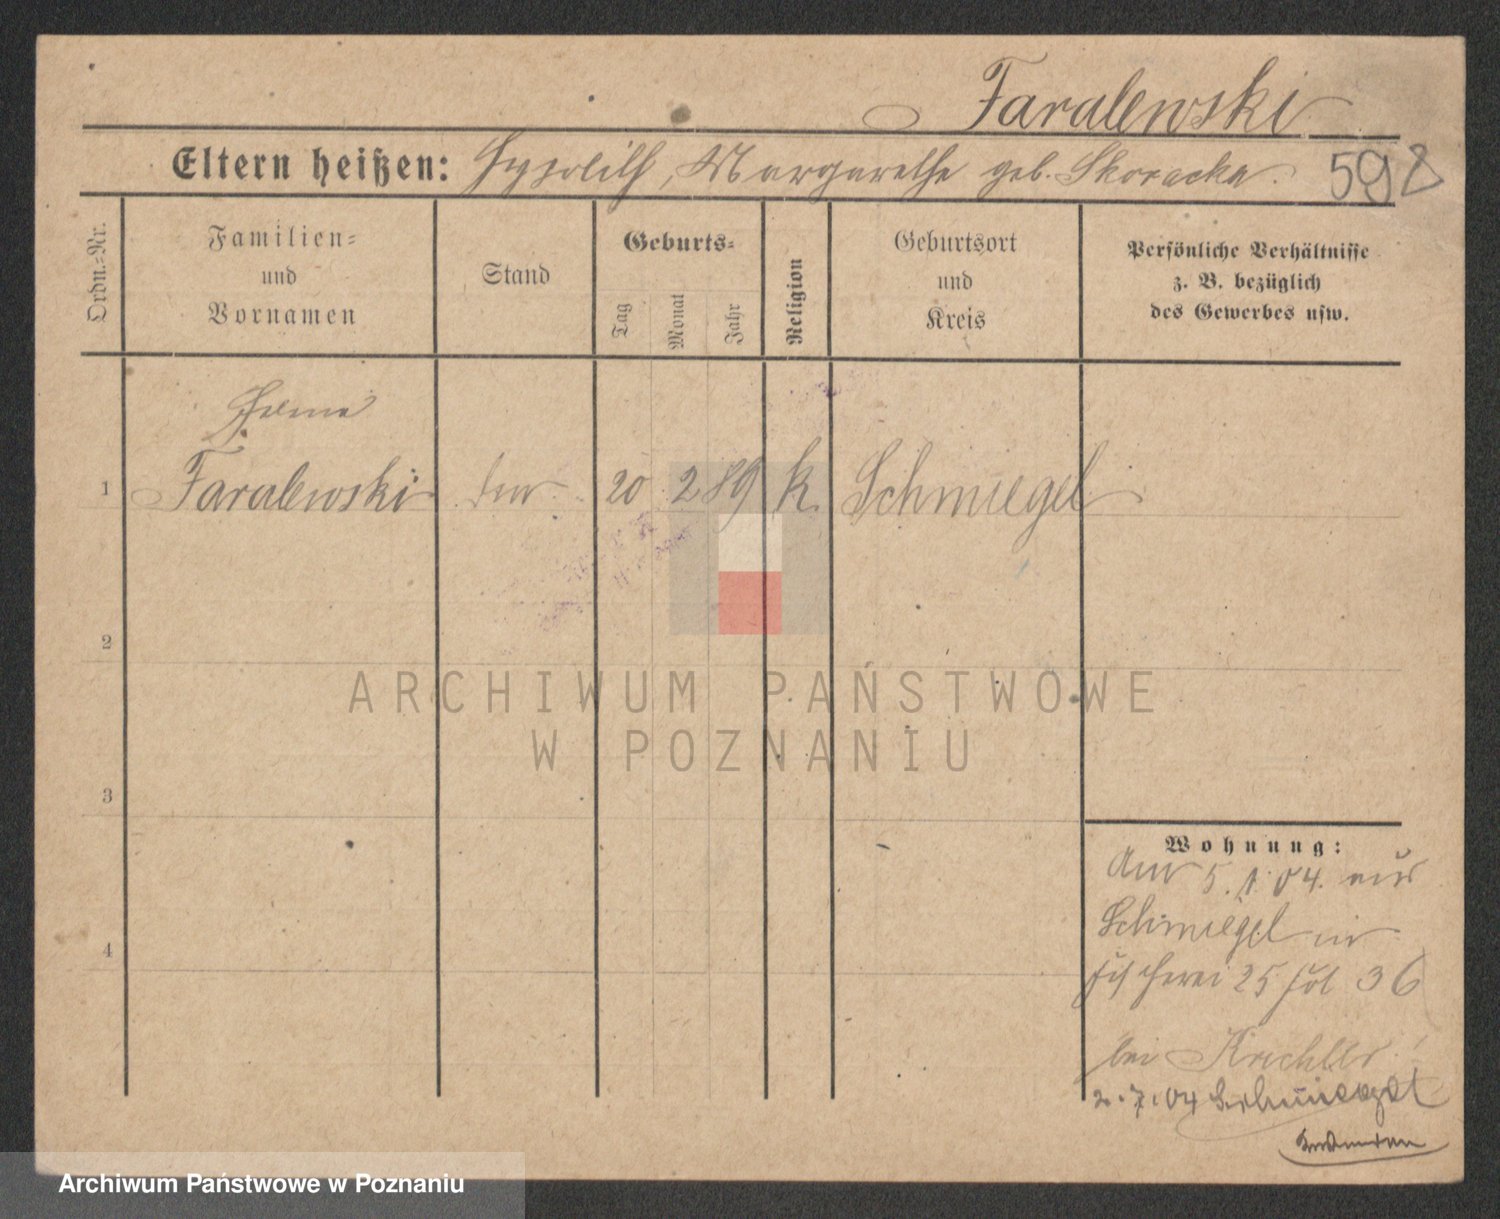 Faralewski
Eltern heißen: Hypolith, Margarethe geb. Skoracka. 592
Ordn.=Nr.
Familien=
und
Vornamen
Stand
Geburts=
Tag
Monat
Jahr
Religion
Geburtsort
und
Kreis
Persönliche Verhältnisse
z. B. bezüglich
des Gewerbes usw.
1 Faralewski 20 2 89 k. Schmiegel
2
3
4
Wohnung:
Am 5. 1. 04. aus
Schmiegel in
Fischerei 25 36
bei
2. 7. 04 Schmiegel
ARCHIWUM PAŃSTWOWE
W POZNANIU
Archiwum Państwowe w Poznaniu